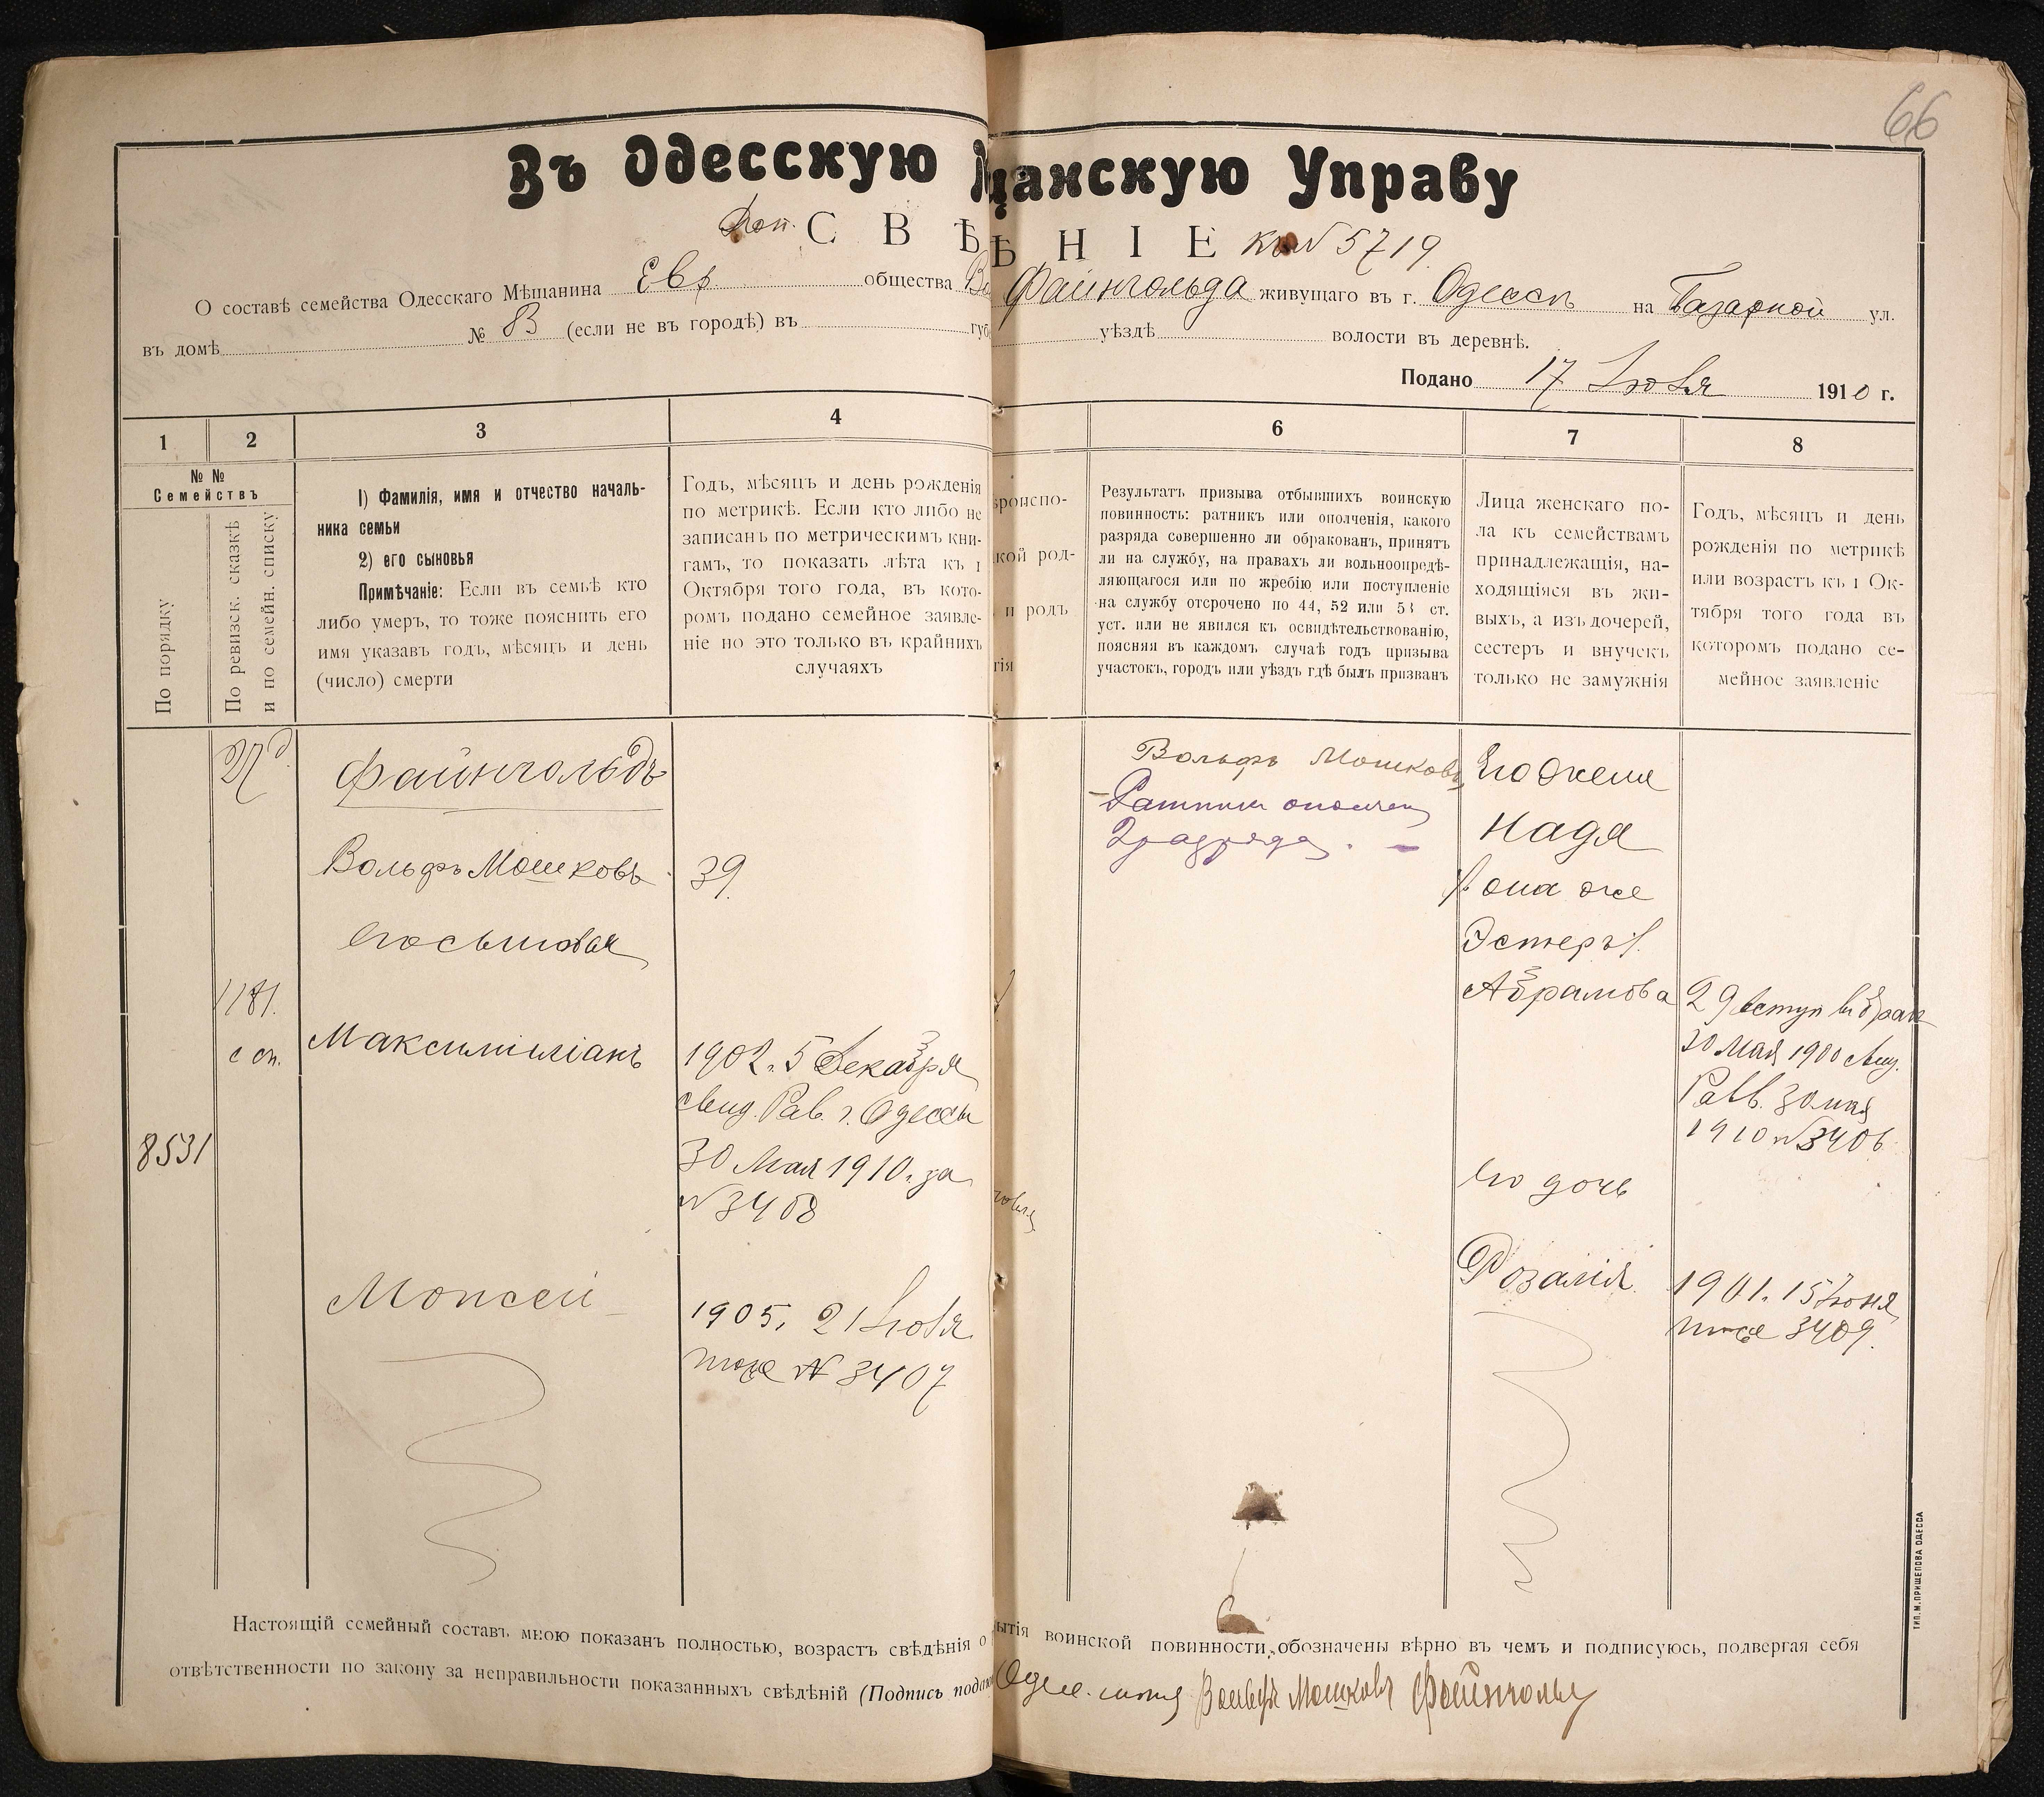 66
Въ Одесскую
щанскую Управу
Доп. СВѢ
ѢНІЕ къ № 5719.
О составѣ семейства Одесскаго Мѣщанина Евр. общества
Файнгольда живущаго въ г. Одессѣ на Базарной ул.
въ домѣ № 83 (если не въ городѣ) въ
уѣздѣ волости въ деревнѣ.
Подано 17 Іюля 1910 г.
1 2 3 4
6 7 8
№ № Семействъ
По порядку
По ревизск. сказкѣ
и по семейн. списку
1) Фамилія, имя и отчество началь-
ника семьи
2) его сыновья
Примѣчаніе: Если въ семьѣ кто
либо умеръ, то тоже пояснить его
имя указавъ годъ, мѣсяцъ и день
(число) смерти
Годъ, мѣсяцъ и день рожденія
по метрикѣ. Если кто либо не
записанъ по метрическимъ кни-
гамъ, то показать лѣта къ 1
Октября того года, въ кото-
ромъ подано семейное заявле-
ніе но это только въ крайнихъ
случаяхъ
ѣроиспо-
кой род-
и родъ
гія
Результатъ призыва отбывшихъ воинскую
повинность: ратникъ или ополченія, какого
разряда совершенно ли обракованъ, принятъ
ли на службу, на правахъ ли вольноопредѣ-
ляющагося или по жребію или поступленіе
на службу отсрочено по 44, 52 или 53 ст.
уст. или не явился къ освидѣтельствованію,
поясняя въ каждомъ случаѣ годъ призыва
участокъ, городъ или уѣздъ гдѣ былъ призванъ
Лица женскаго по-
ла къ семействамъ
принадлежащія, на-
ходящіяся въ жи-
выхъ, а изъ дочерей,
сестеръ и внучекъ
только не замужнія
Годъ, мѣсяцъ и день
рожденія по метрикѣ
или возрастъ къ 1 Ок-
тября того года въ
которомъ подано се-
мейное заявленіе
Файнгольдъ
Вольфъ Мошковъ
39.
его сыновья
1181.
с сп.
Максимиліанъ
1902. 5 Декабря
свид. Рав. г. Одессы
30 Мая 1910. за
№ 3408
8531
Моисей
1905. 21 Іюля
тоже № 3407
Вольфъ Мошковъ
Ратникъ ополчен
2 разряда. –
Его жена
Надя
(она же
Эстеръ).
Абрамова
29 вступ въ брак
30 Мая 1900 свид.
Равв. 30 мая
1910 № 3406
Его дочь
Розалія
1901. 15 Іюня
тоже 3409.
Настоящій семейный составъ мною показанъ полностью, возрастъ свѣдѣнія о
ытія воинской повинности, обозначены вѣрно въ чемъ и подписуюсь, подвергая себя
отвѣтственности по закону за неправильности показанныхъ свѣдѣній (Подпись
Вольфъ Мошковъ Файнгольд
ТИП. М. ПРИЩЕПОВА ОДЕССА